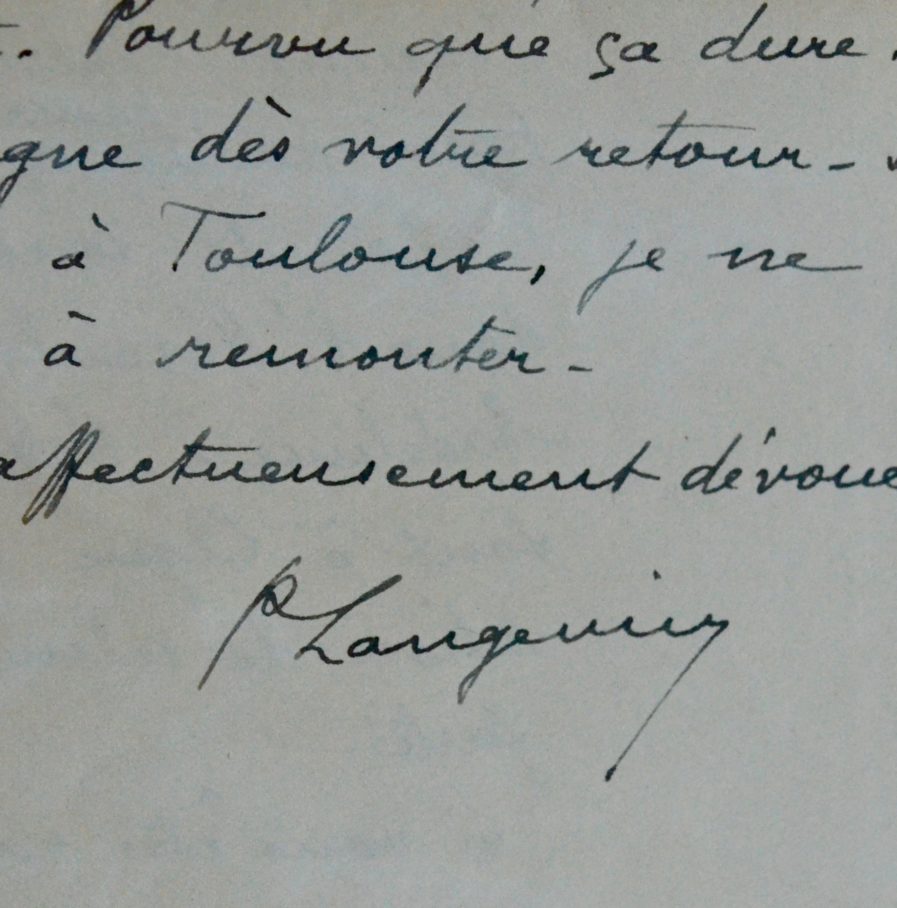 . Pourvu que ça dure.
gne dès votre retour -
à Toulouse, je ne
à remonter -
affectueusement dévoué
P Langevin